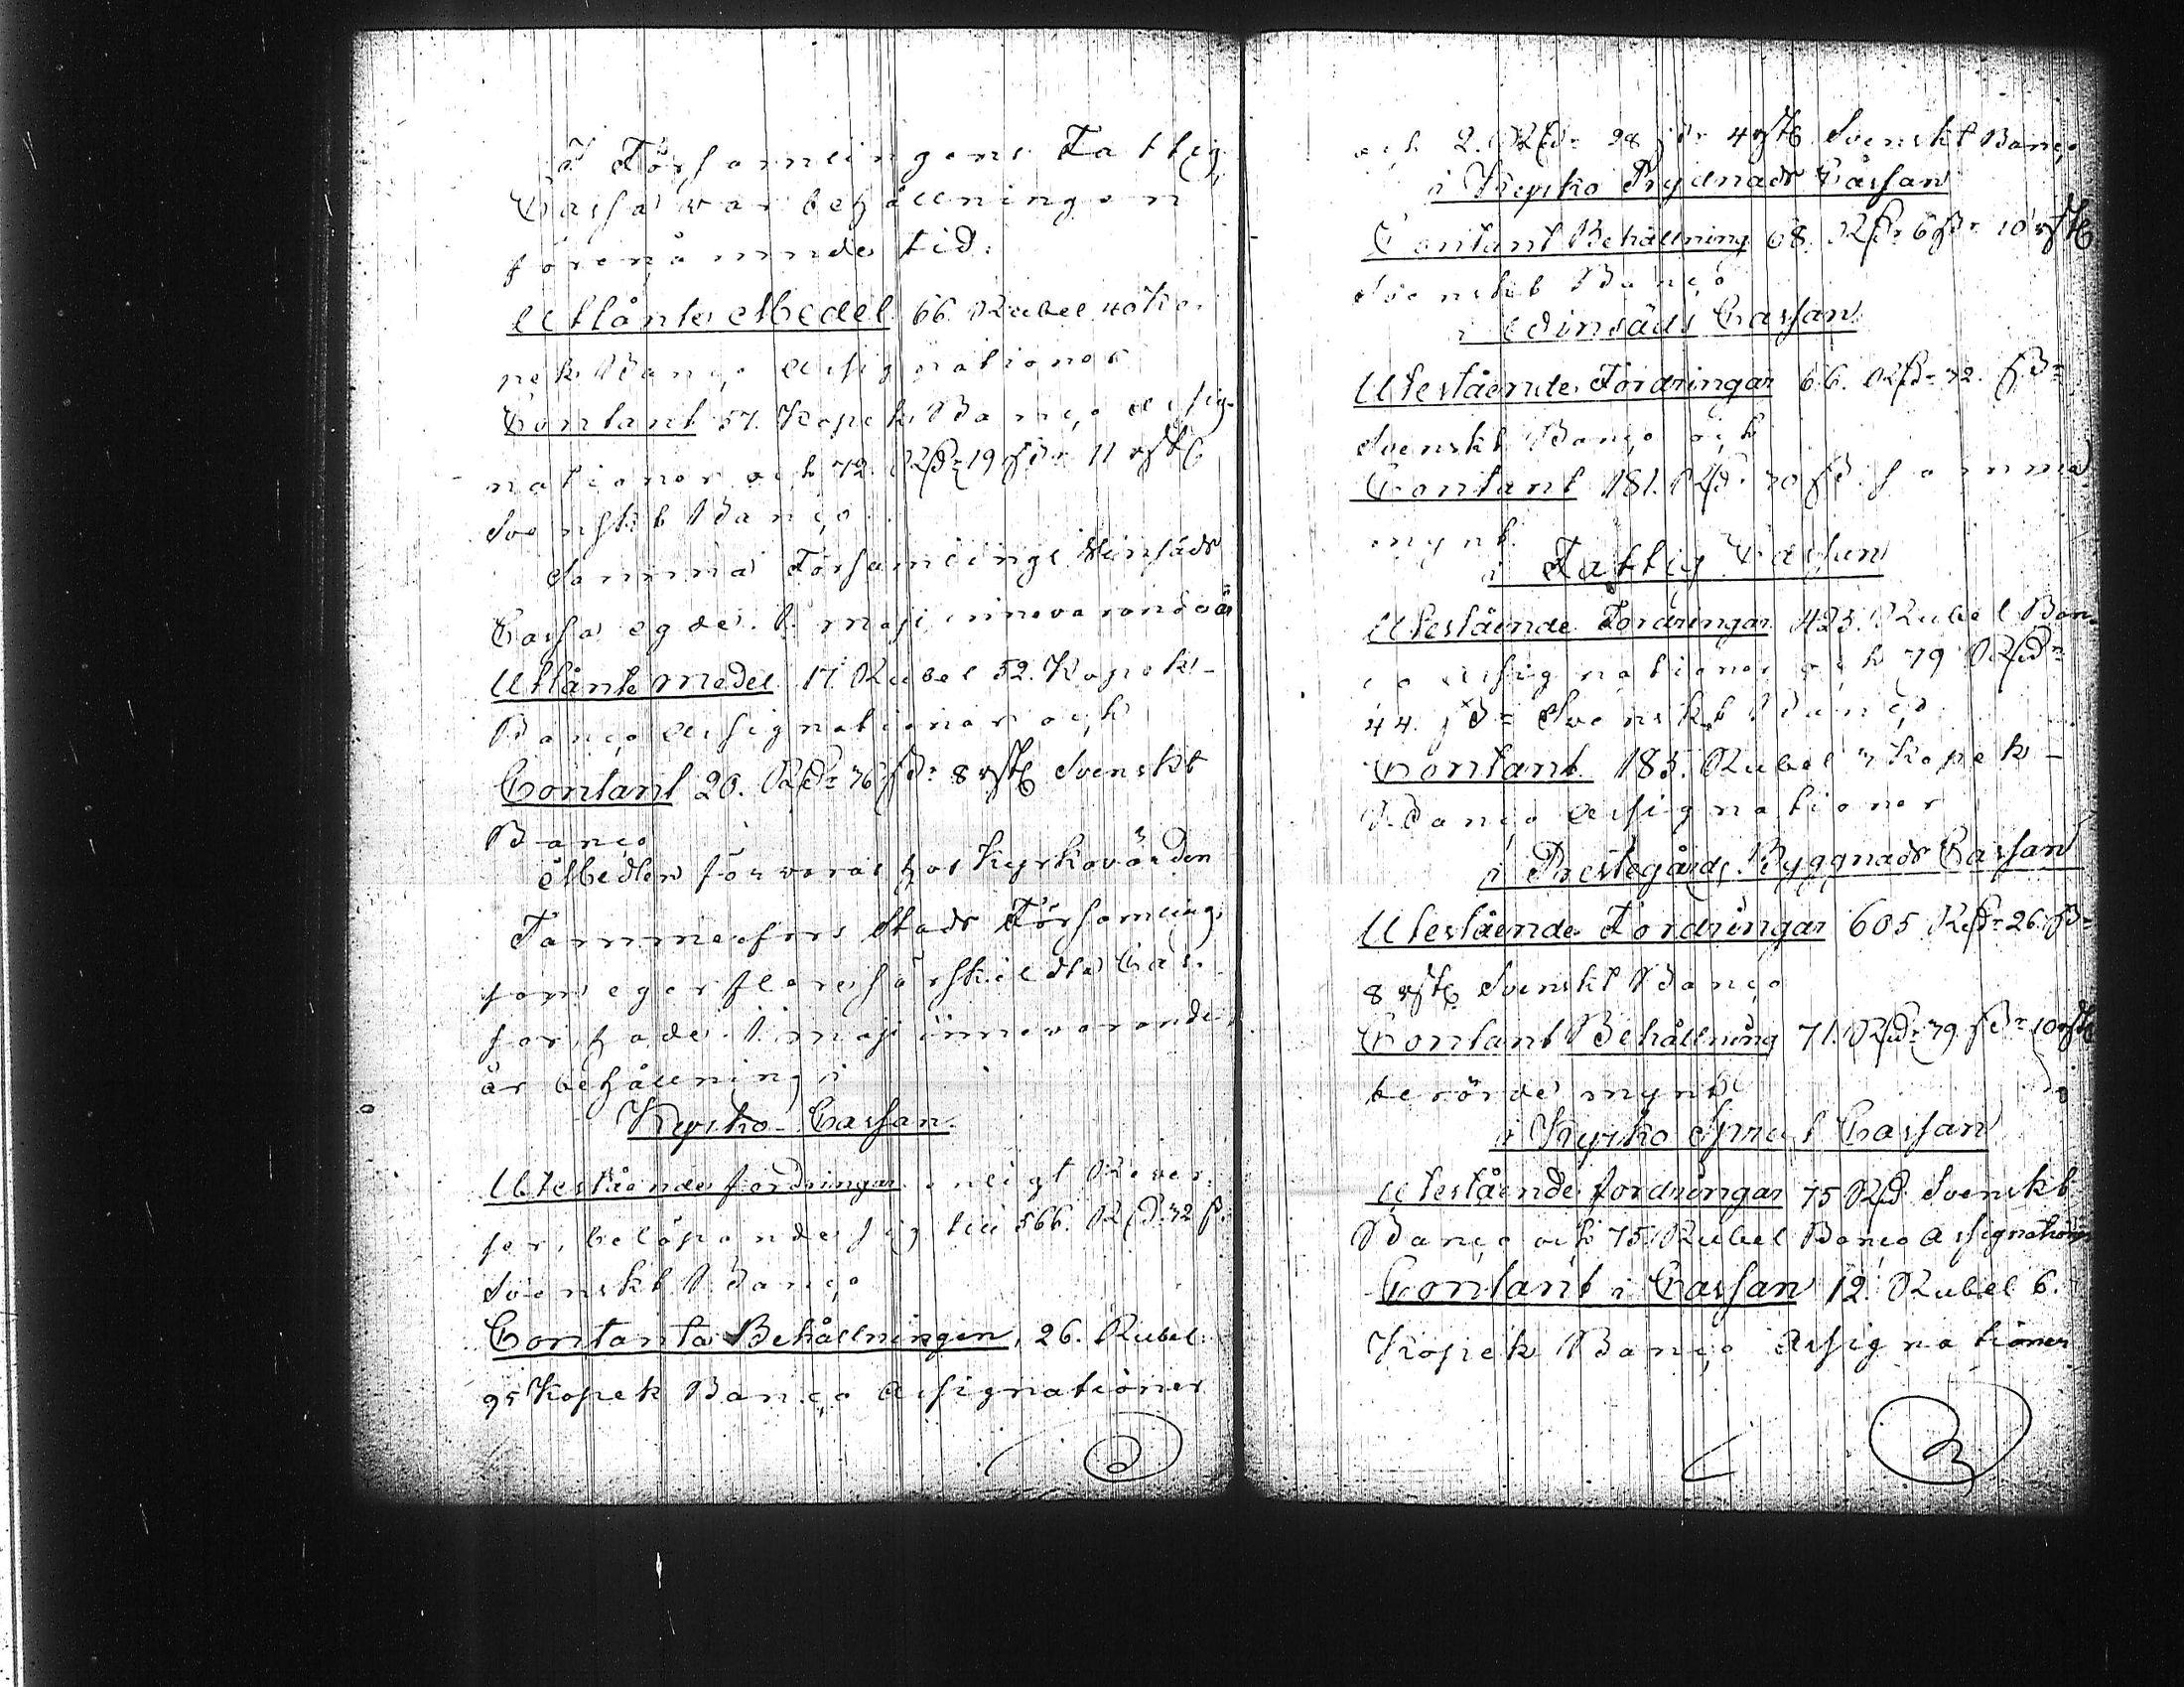 I Församlingens Fattig
Cassa var behållningen
förenämnde tid:
Utlånte Medel 66. Rubel 40 Ko-
pek Banco Assignationer
Contant 57. Kopek Banco Assig-
nationer och 72. Rd: 19 sk: 11 rst
Svenskt Banco.
Samma Församlings Vinsäds
Cassa egde 1. maji innevarande år
Utlånte medel 17. Rubel 52. Kopek
Banco Assignationer och
Contant 20. Rd: 76 sk: 8 rst Svenskt
Banco
Medlen förvaras hos Kyrkovärden
Tammerfors Stads Församling,
som eger flere särskildta Cas-
sor, hade 1. maji innevarande
år behållning i
Kyrko-Cassan.
Utestående fordringar enligt Rever-
ser, belöpande sig till 566. Rd: 32 s.
Svenskt Banco
Contanta Behållningen, 26. Rubel
95 Kopek Banco Assignationer
och 2. Rd: 28 sk: 4 rst Svenskt Banco
i Kyrko Prydnads Cassan
Contant Behållning 68. Rd: 6 sk: 10 rst
Svenskt Banco
i Vinsäds Cassan
Utestående Fordringar 66. Rd: 32. sk:
Svenskt Banco och
Contant 181. Rd: 20 sk. samma
mynt.
i Fattig Cassan
Utestående Fordringar 423. Rubel Ban-
co Assignationer och 79 Rd:
44. sk: Svenskt Banco
Contant 183. Rubel 7 Kopek
Banco Assignationer
i Prestegårds Byggnads Cassan
Utestående Fordringar 605 Rd: 26. sk:
8 rst Svenskt Banco
Contant Behållning 71. Rd: 79. sk: 10 rst
berörde mynt
i Kyrko Cassan
Utestående fordringar 75 Rd. Svenskt
Banco och 75. Rubel Banco Assignationer
Contant i Cassan 12. Rubel 6.
Kopek Banco Assignationer